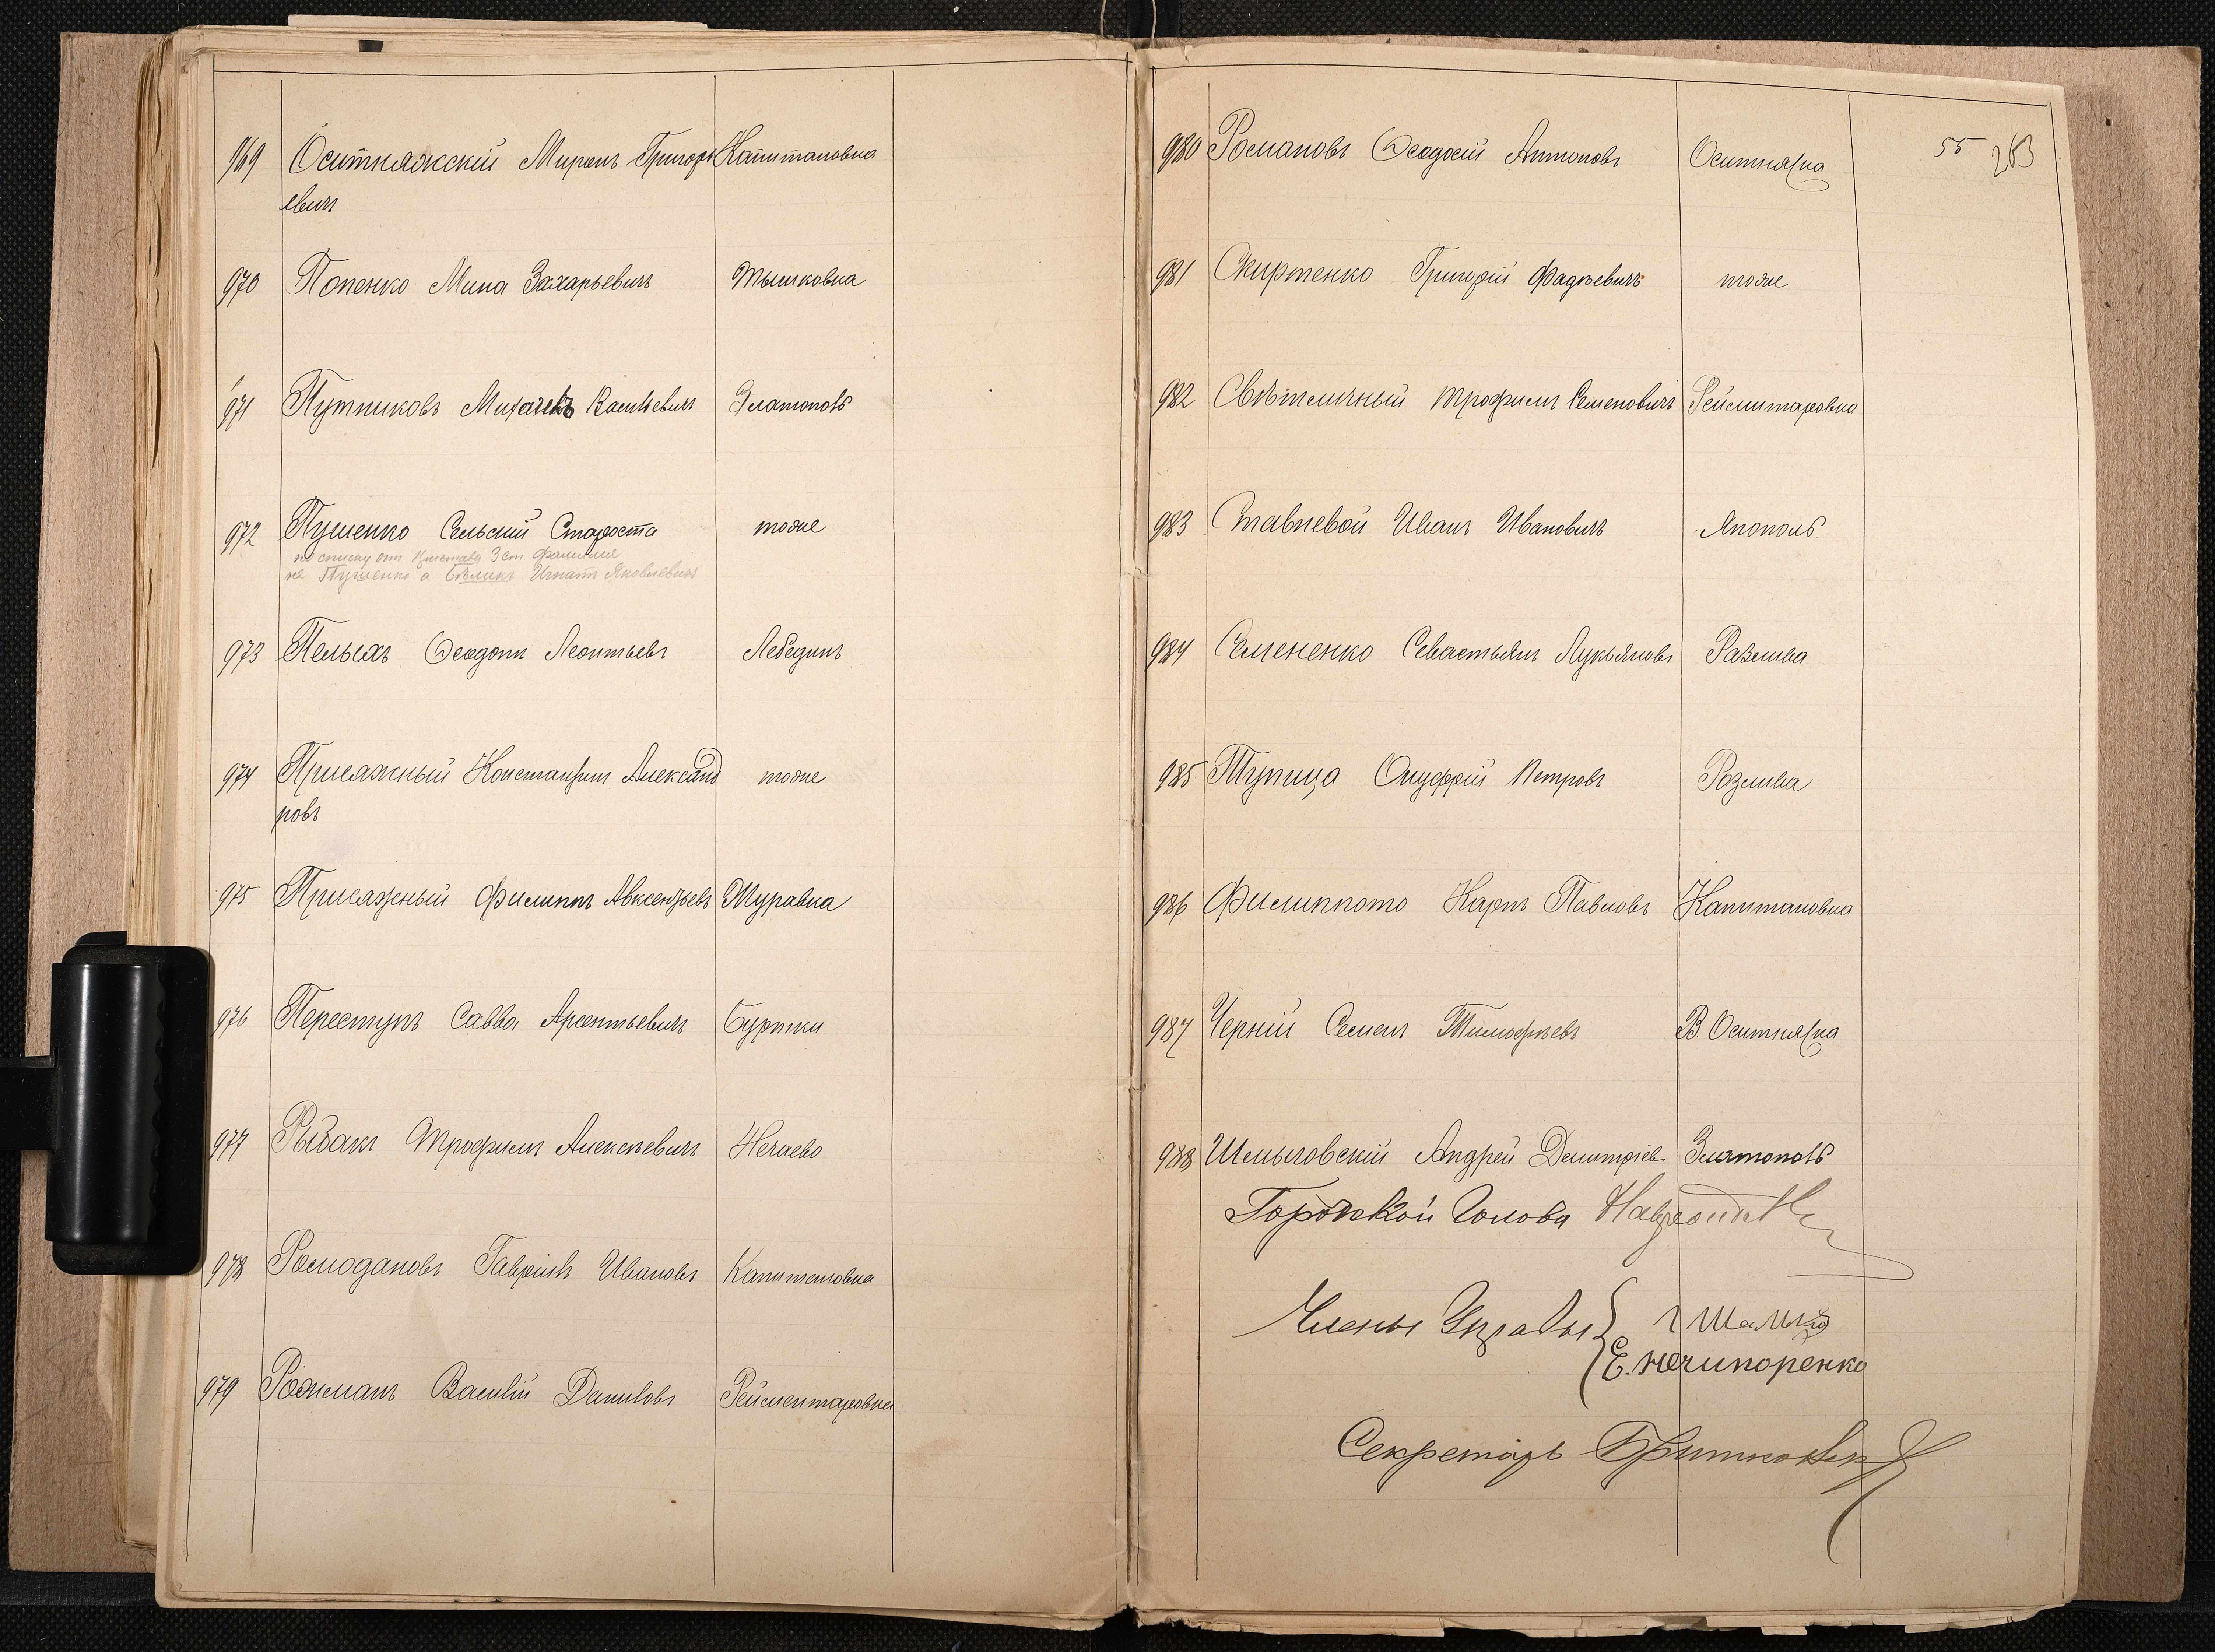 969 Оситняжскій Миронъ Григорь Капитановка
евичъ
970 Попенко Мина Захарьевичъ Тышковка
971 Путниковъ Михаилъ Васильевичъ Златополь
972 Пушенко Сельскій Староста тоже
по списку от Пристава 3 ст фамилия
не Пушенко а Бѣликъ Игнатъ Яковлевичъ
973 Пельхъ Ѳеодотъ Леонтьевъ Лебединъ
974 Присяжный Константинъ Александ тоже
ровъ
975 Присяжный Филиппъ Авксентьевъ Журавка
976 Переступъ Савва Арсентьевичъ Буртки
977 Рыбакъ Трофимъ Алексѣевичъ Нечаево
978 Ромодановъ Гавріилъ Ивановъ Капитановка
979 Рожманъ Василій Даниловъ Рейментаровка
55 263
980 Романовъ Ѳеодосій Антоновъ Оситняжка
981 Скиртенко Григорій Фадѣевичъ тоже
982 Свѣтличный Трофимъ Семеновичъ Рейментаровка
983 Ставневой Иванъ Ивановичъ Янополь
984 Семененко Севастьянъ Лукьяновъ Розлива
985 Тупица Онуфрій Петровъ Розлива
986 Филиппото Карпъ Павловъ Капитановка
987 Черній Семенъ Тимофѣевъ В. Оситняжка
988 Шлыговскій Андрей Дмитріев Златополь
Городской Голова
Члены Управы
Е. Нечипоренко
Секретарь